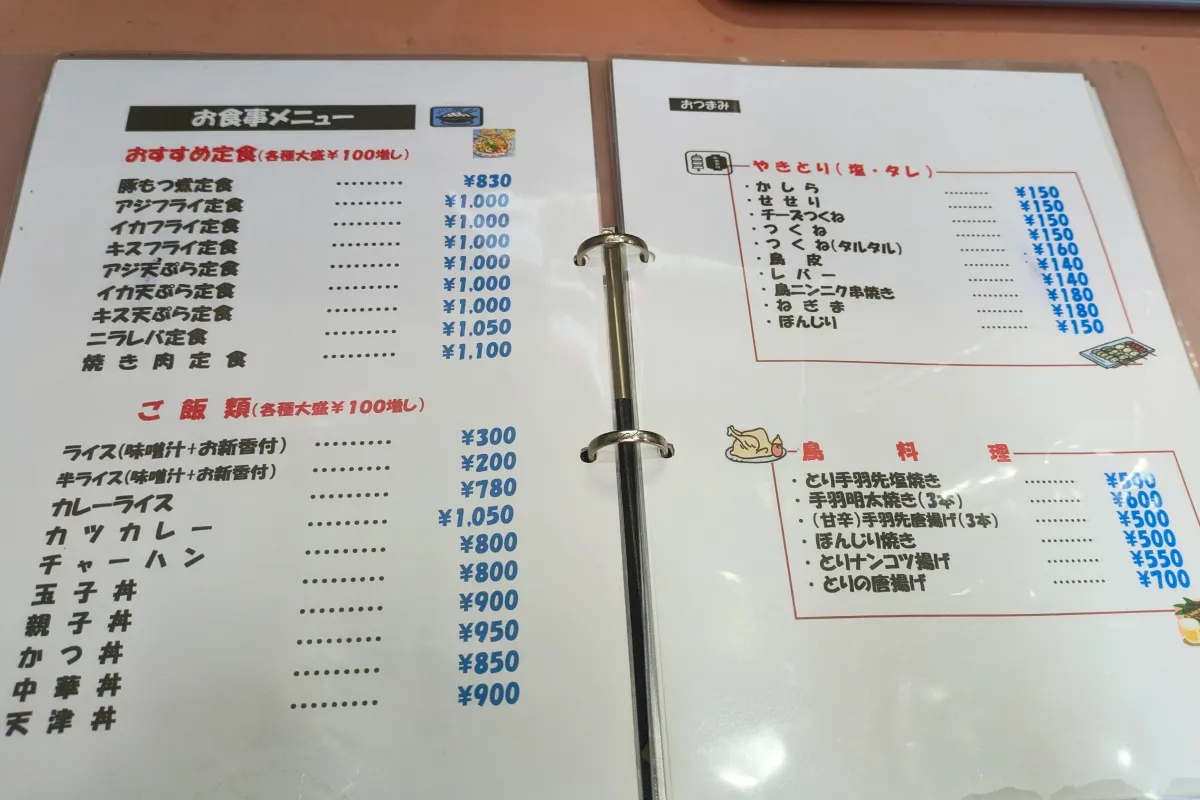 お食事メニュー
おすすめ定食(各種大盛¥100増し)
豚もつ煮定食 ……… ¥830
アジフライ定食 ……… ¥1.000
イカフライ定食 ……… ¥1.000
キスフライ定食 ……… ¥1.000
アジ天ぷら定食 ……… ¥1.000
イカ天ぷら定食 ……… ¥1.000
キス天ぷら定食 ……… ¥1.000
ニラレバ定食 ……… ¥1.050
焼き肉定食 ……… ¥1.100
ご飯類(各種大盛¥100増し)
ライス(味噌汁+お新香付) ……… ¥300
半ライス(味噌汁+お新香付) ……… ¥200
カレーライス ……… ¥780
カツカレー ……… ¥1.050
チャーハン ……… ¥800
玉子丼 ……… ¥800
親子丼 ……… ¥900
かつ丼 ……… ¥950
中華丼 ……… ¥850
天津丼 ……… ¥900
おつまみ
やきとり(塩・タレ)
・かしら ……… ¥150
・せせり ……… ¥150
・チーズつくね ……… ¥150
・つくね ……… ¥150
・つくね(タルタル) ……… ¥160
・鳥皮 ……… ¥140
・レバー ……… ¥140
・鳥ニンニク串焼き ……… ¥180
・ねぎま ……… ¥180
・ぼんじり ……… ¥150
鳥料理
・とり手羽先塩焼き ………
・手羽明太焼き(3本) ……… ¥600
・(甘辛)手羽先唐揚げ(3本) ……… ¥500
・ぼんじり焼き ……… ¥500
・とりナンコツ揚げ ……… ¥550
・とりの唐揚げ ……… ¥700